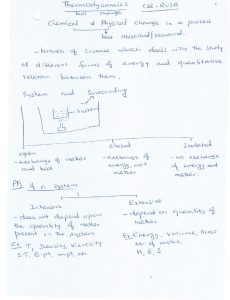 Thermodynamics
Chemical & Physical change in a process
heat absorbed/removed.
- branch of science which deals with the study
of different forms of energy and quantitative
relation between them.
System and Surrounding
System
open closed Isolated
- exchange of matter and heat
- exchange of energy, not matter
- no exchange of energy and matter.
of a System
Intensive Extensive
- does not depend upon
the quantity of matter
present in the system
- depend on quantity of
matter
Ex: T, Density, Viscosity
S.T, B.pt, mpt, etc
Ex: Energy, Volume, Mass
no. of moles,
H, G, S